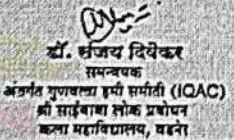 डॉ. संजय दिवेकर
समन्वयक
अंतर्गत गुणवत्ता हमी समीती (IQAC)
श्री साईबाबा लोक प्रबोधन
कला महाविद्यालय, वडनेर